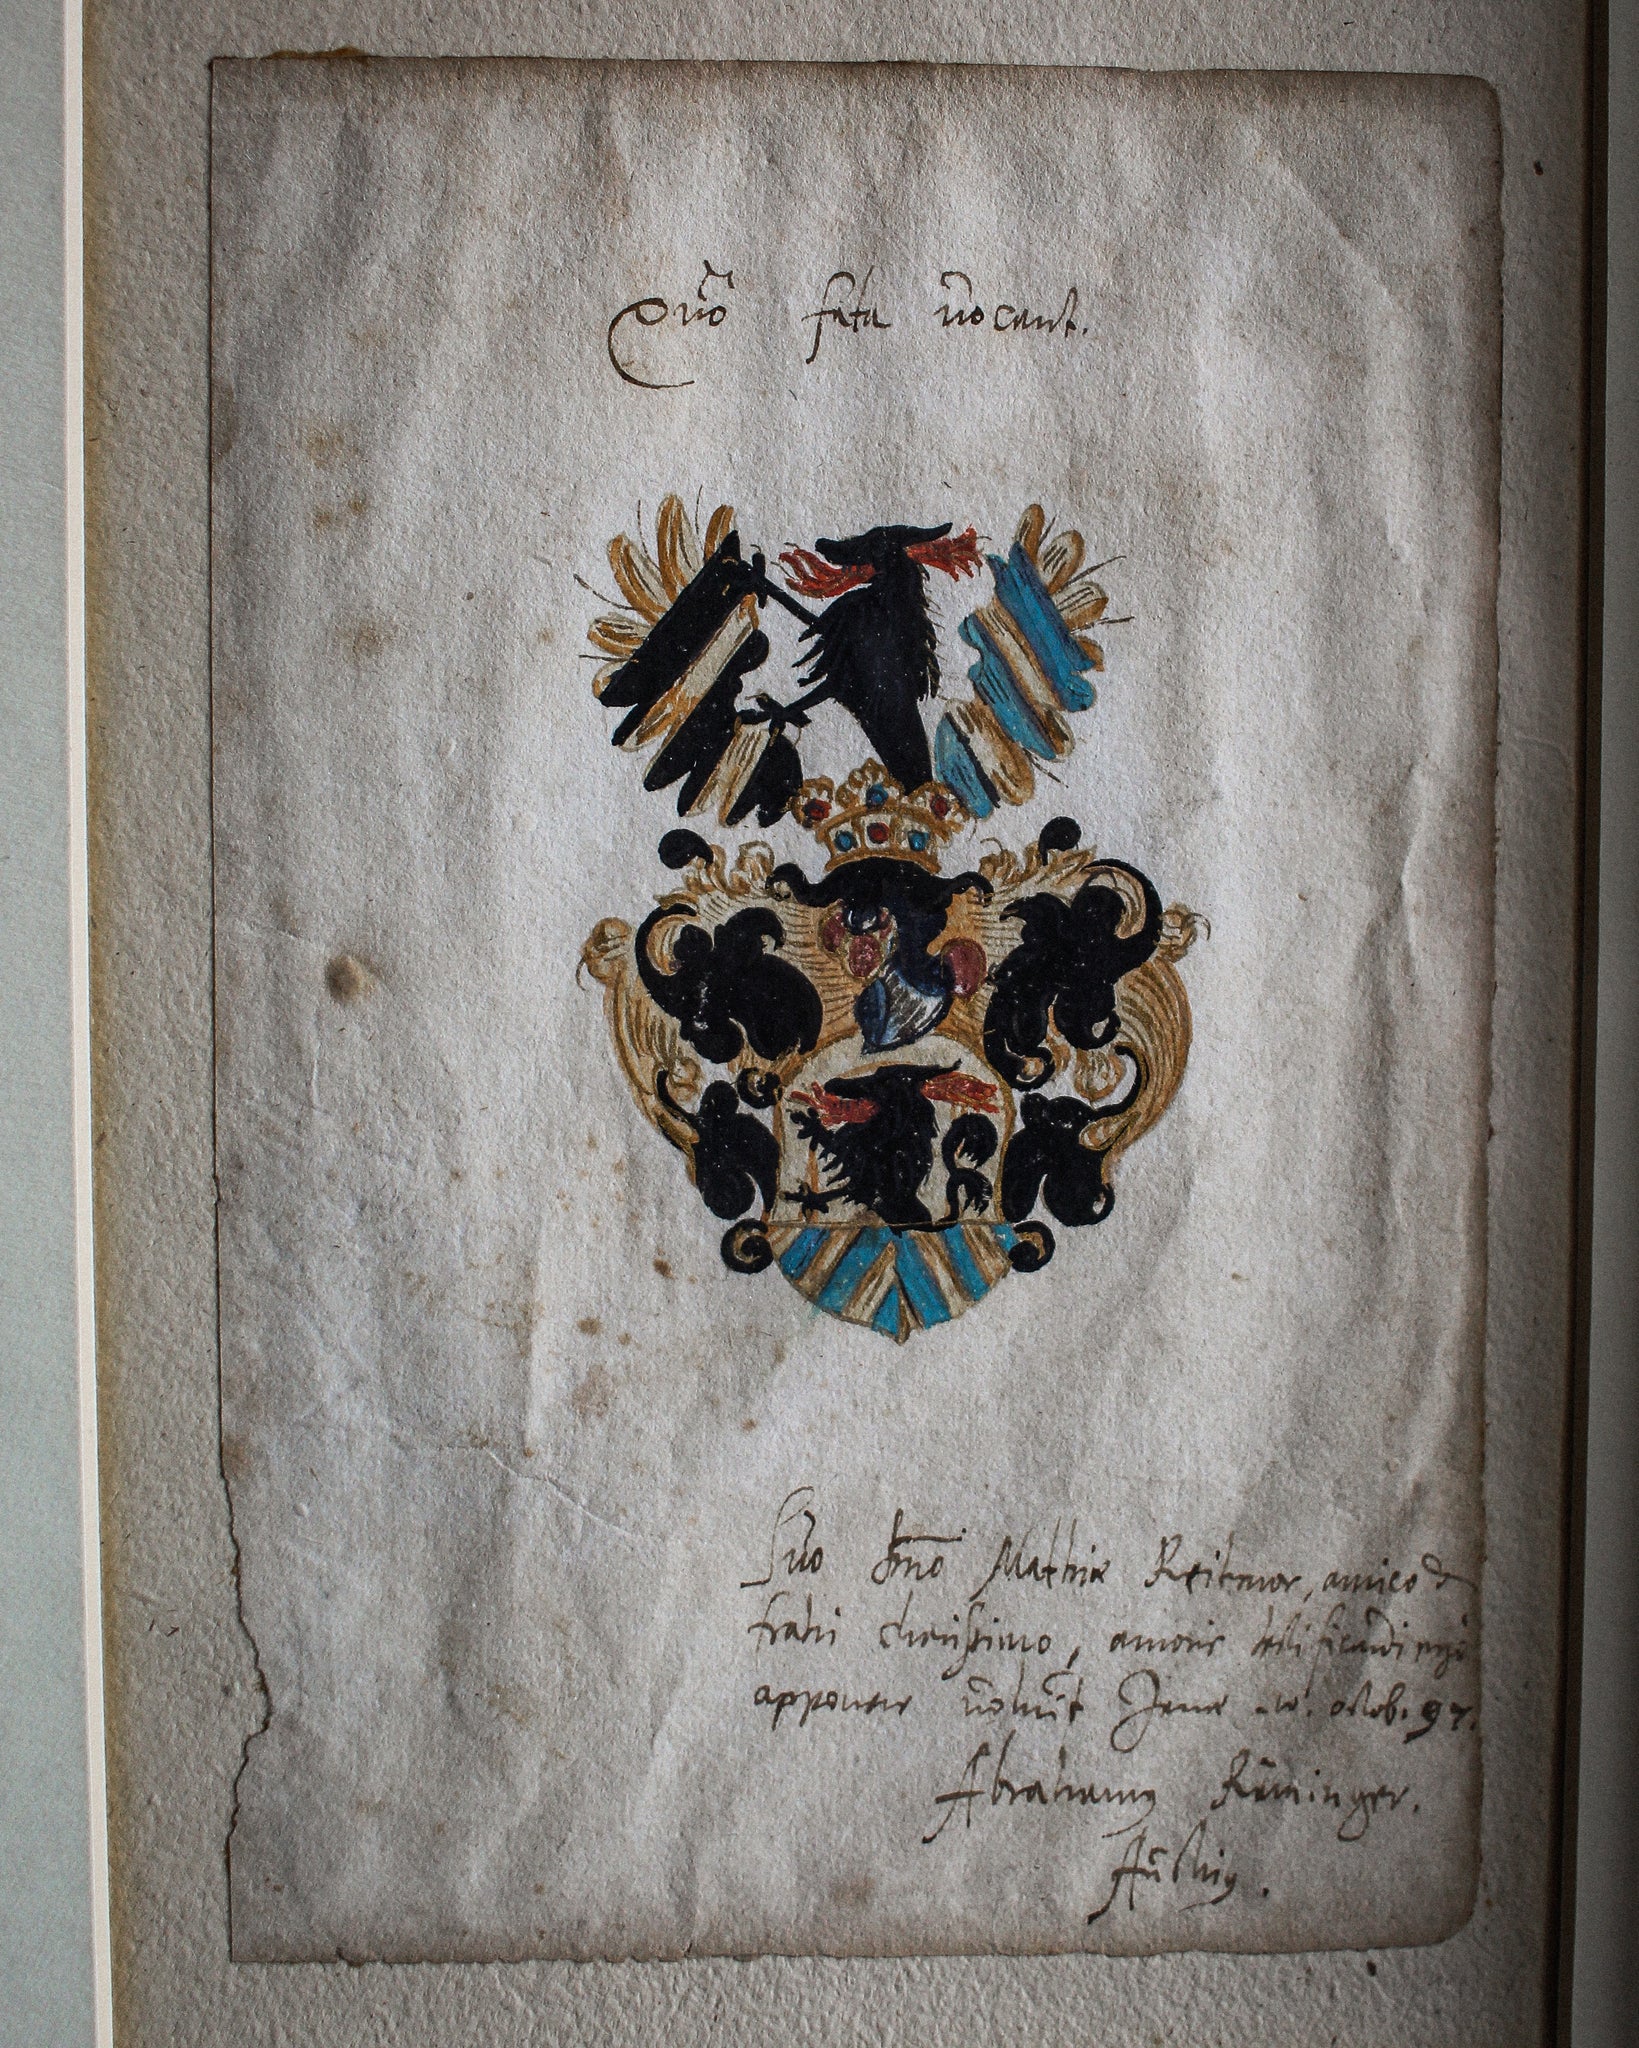 Quo fata vocant.
Suo dno Mathiæ Reitmor, amico &
fratri charissimo, amoris testificandi ergo
apponere voluit Jenæ octob. 97.
Abrahamus Reminger.